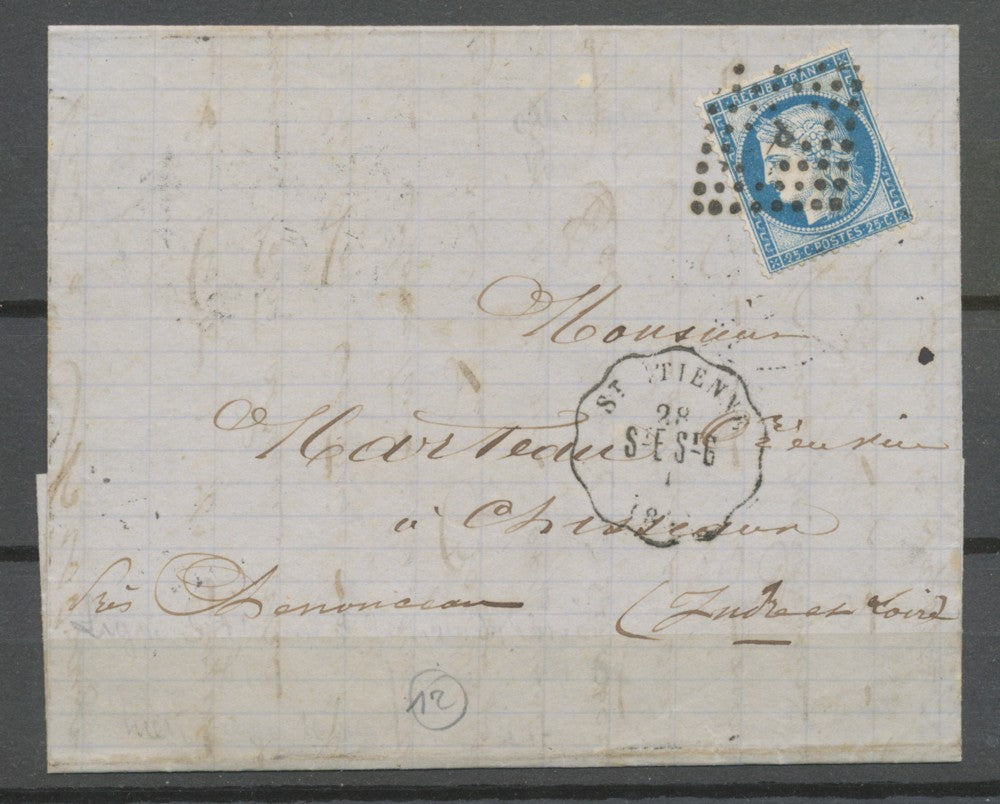 REPUB. FRANC
25 C. POSTES 25 C.
Monsieur
ST ETIENNE
28
Marteau
STE STG
à Chisseaux
près Chenonceau (Indre et Loire)
12